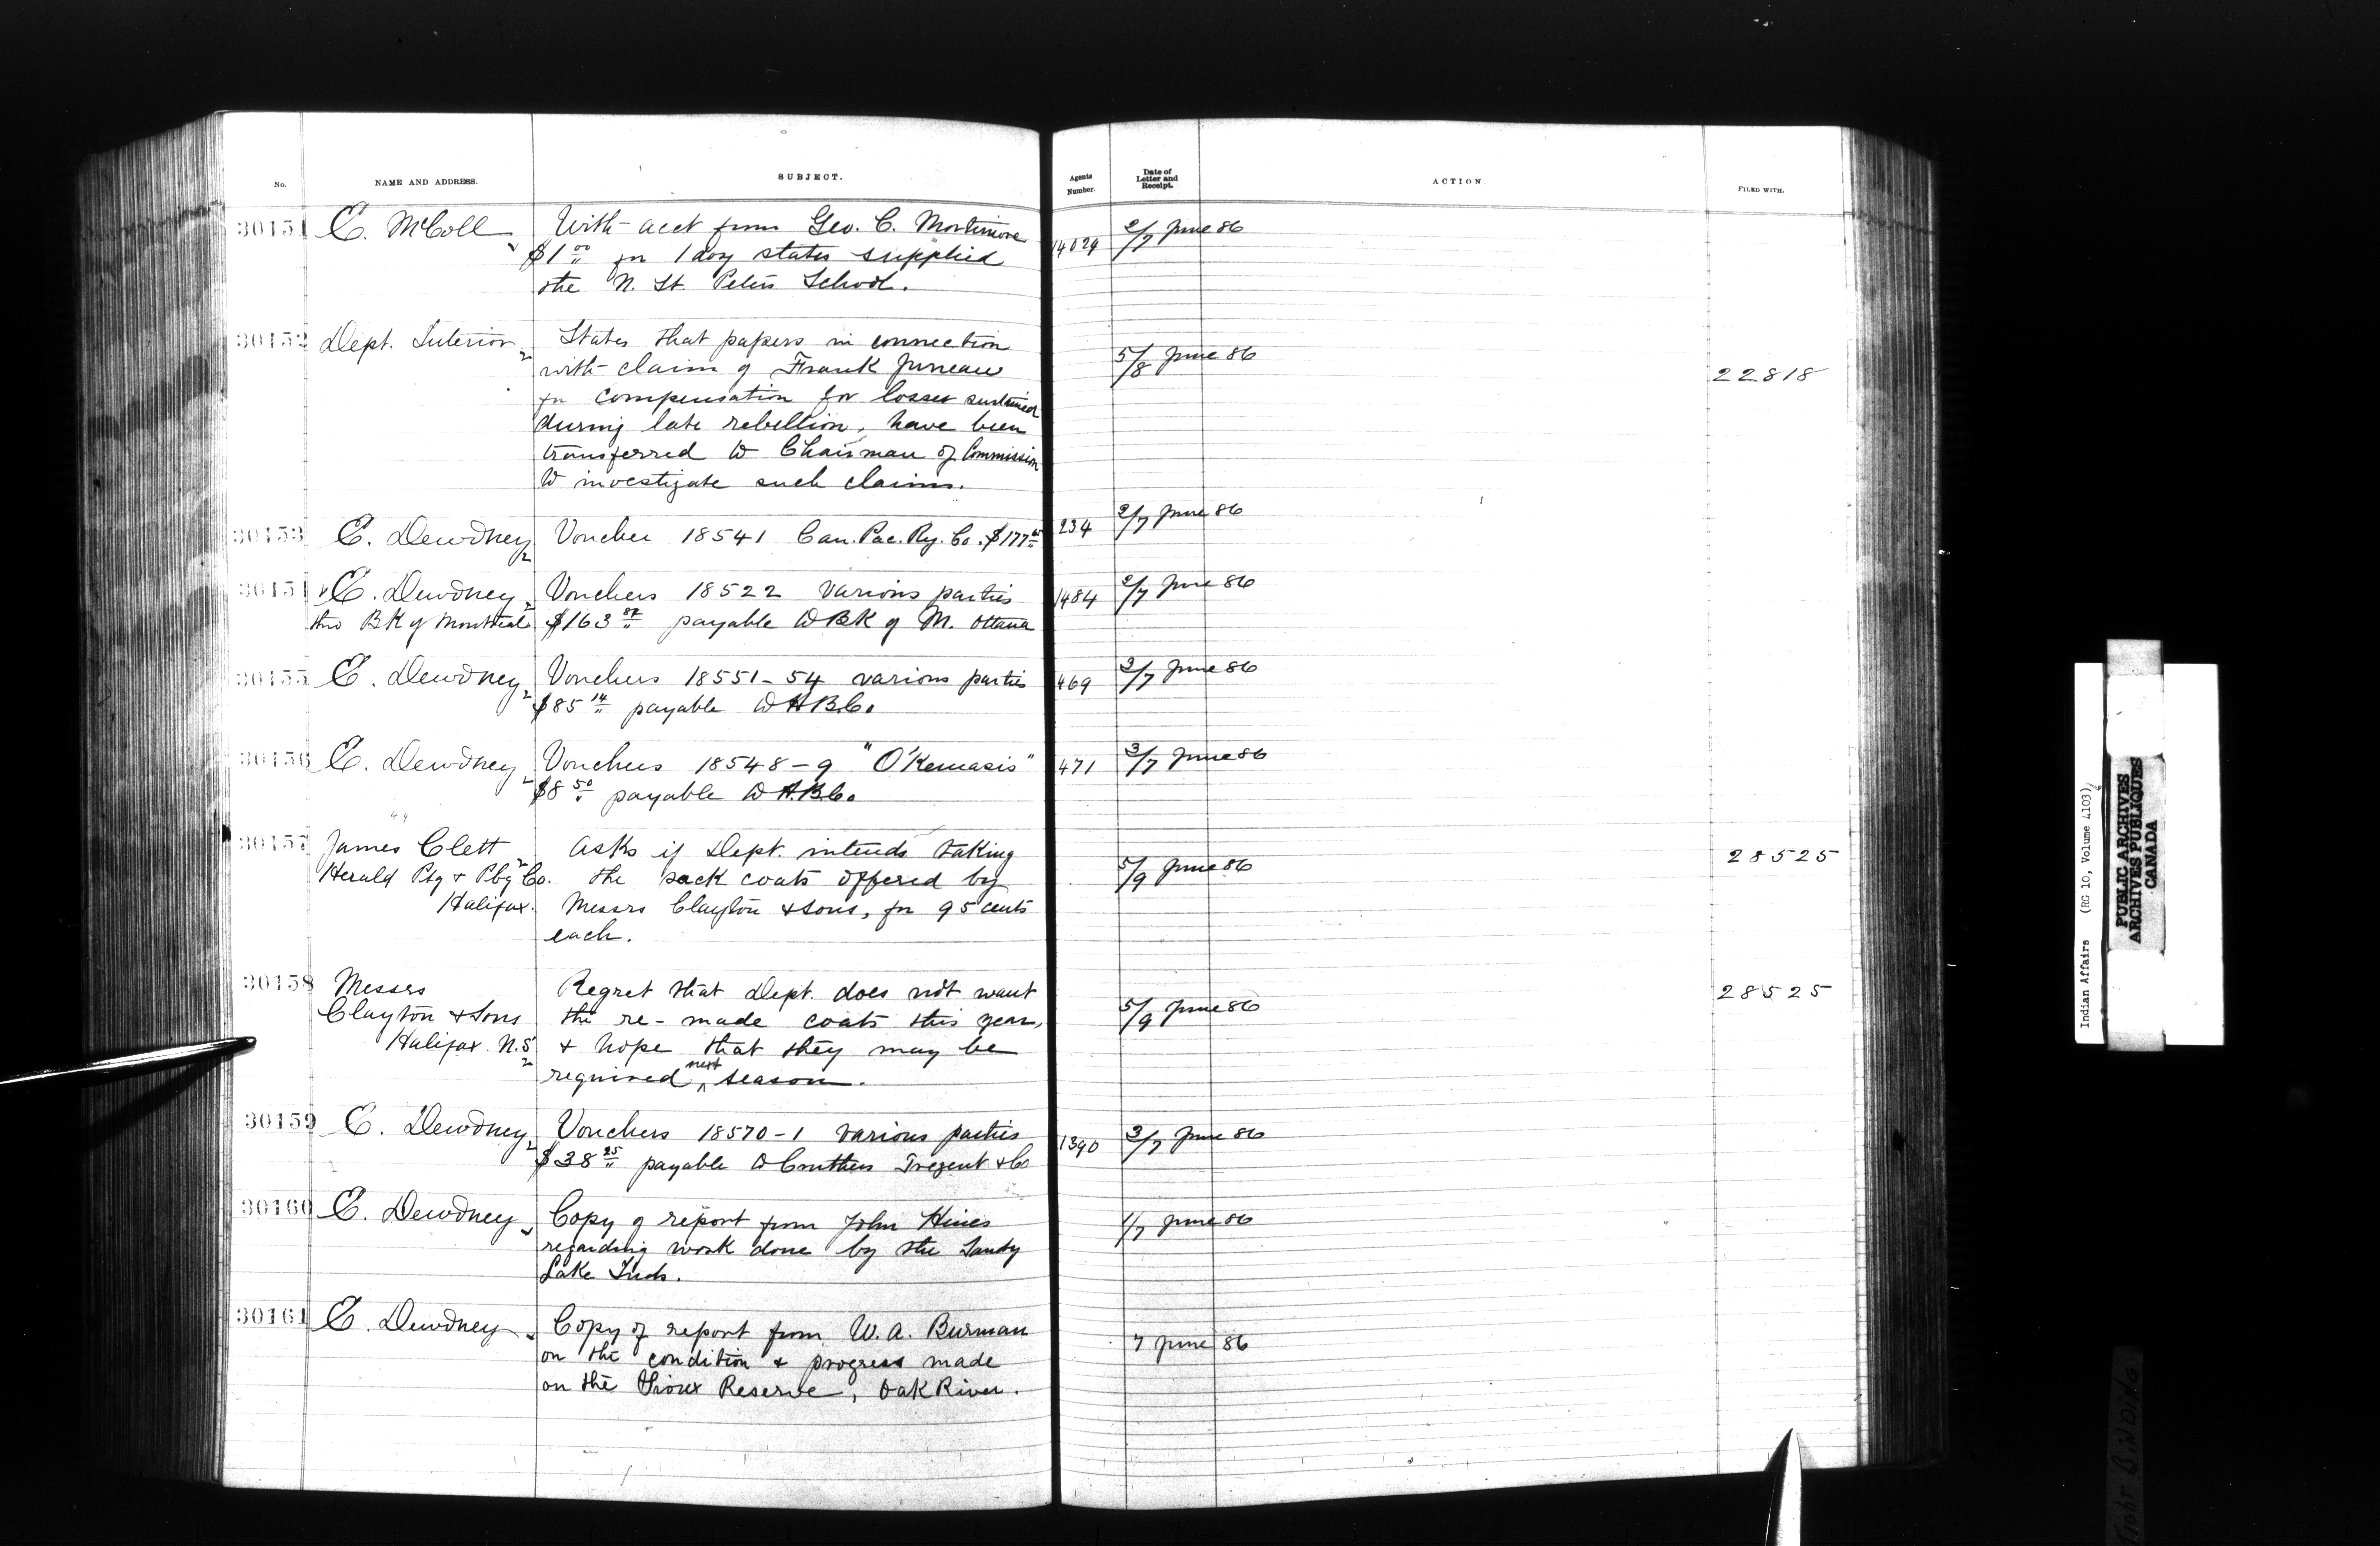 No. NAME AND ADDRESS. SUBJECT. Agents Number. Date of Letter and Receipt. ACTION. FILED WITH.
30151 E. McColl With acct from Geo. C. Mortimore 14029 2/7 June 86
$1 00 for 1 doz slates supplied
the N. St. Peters School.
30152 Dept. Interior States that papers in connection 5/8 June 86
with claim of Frank Juneau 22818
for compensation for losses sustained
during late rebellion, have been
transferred to Chairman of Commission
to investigate such claims.
30153 E. Dewdney Voucher 18541 Can. Pac. Ry. Co. $177 234 2/7 June 86
30154 E. Dewdney Vouchers 18522 various parties 1484 2/7 June 86
thro BK of Montreal $163 87 payable to BK of M. Ottawa
30155 E. Dewdney Vouchers 18551-54 various parties 469 3/7 June 86
$85 14 payable to H.B.Co.
30156 E. Dewdney Vouchers 18548-9 "O'Kemasis" 471 3/7 June 86
$8 50 payable to H.B.Co.
30157 James Clett Asks if Dept. intends taking 5/9 June 86 28525
Herald Ptg & Pbg Co. the sack coats offered by
Halifax. Messrs Clayton & Sons, for 95 cents
each.
30158 Messrs Regret that Dept. does not want 5/9 June 86 28525
Clayton & Sons the re-made coats this year,
Halifax. N.S. & hope that they may be
required next season.
30159 E. Dewdney Vouchers 18570-1 various parties 1390 3/7 June 86
$38 25 payable to Tregent & Co
30160 E. Dewdney Copy of report from John Hines 1/7 June 86
regarding work done by the Sandy
Lake Inds.
30161 E. Dewdney Copy of report from W. A. Burman 7 June 86
on the condition & progress made
on the Sioux Reserve, Oak River.
Indian Affairs (RG 10, Volume 4103)
PUBLIC ARCHIVES
ARCHIVES PUBLIQUES
CANADA
TIGHT BINDING